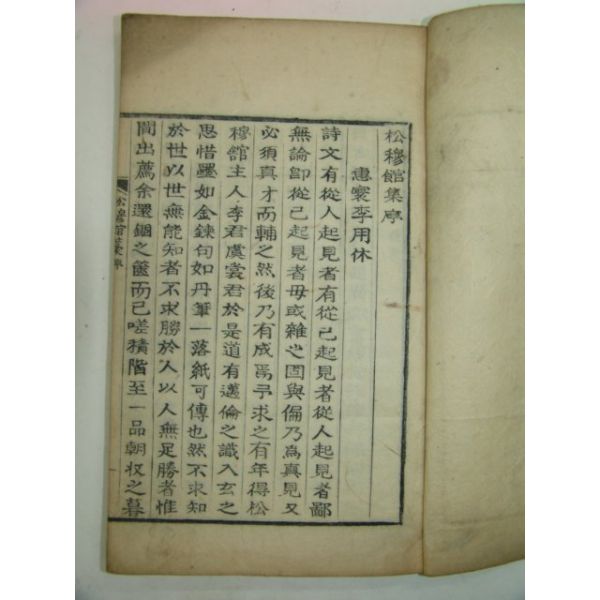 松穆館集序
惠寰李用休
詩文有從人起見者有從己起見者從人起見者鄙
無論卽從己起見者毋或雜之固與偏乃爲眞見又
必須眞才而輔之然後乃有成焉予求之有年得松
穆館主人李君虞裳君於是道有邁倫之識入玄之
思惜墨如金鍊句如丹筆一落紙可傳也然不求知
於世以世無能知者不求勝於人以人無足勝者惟
間出薦余還錮之篋而已嗟積階至一品朝收之暮